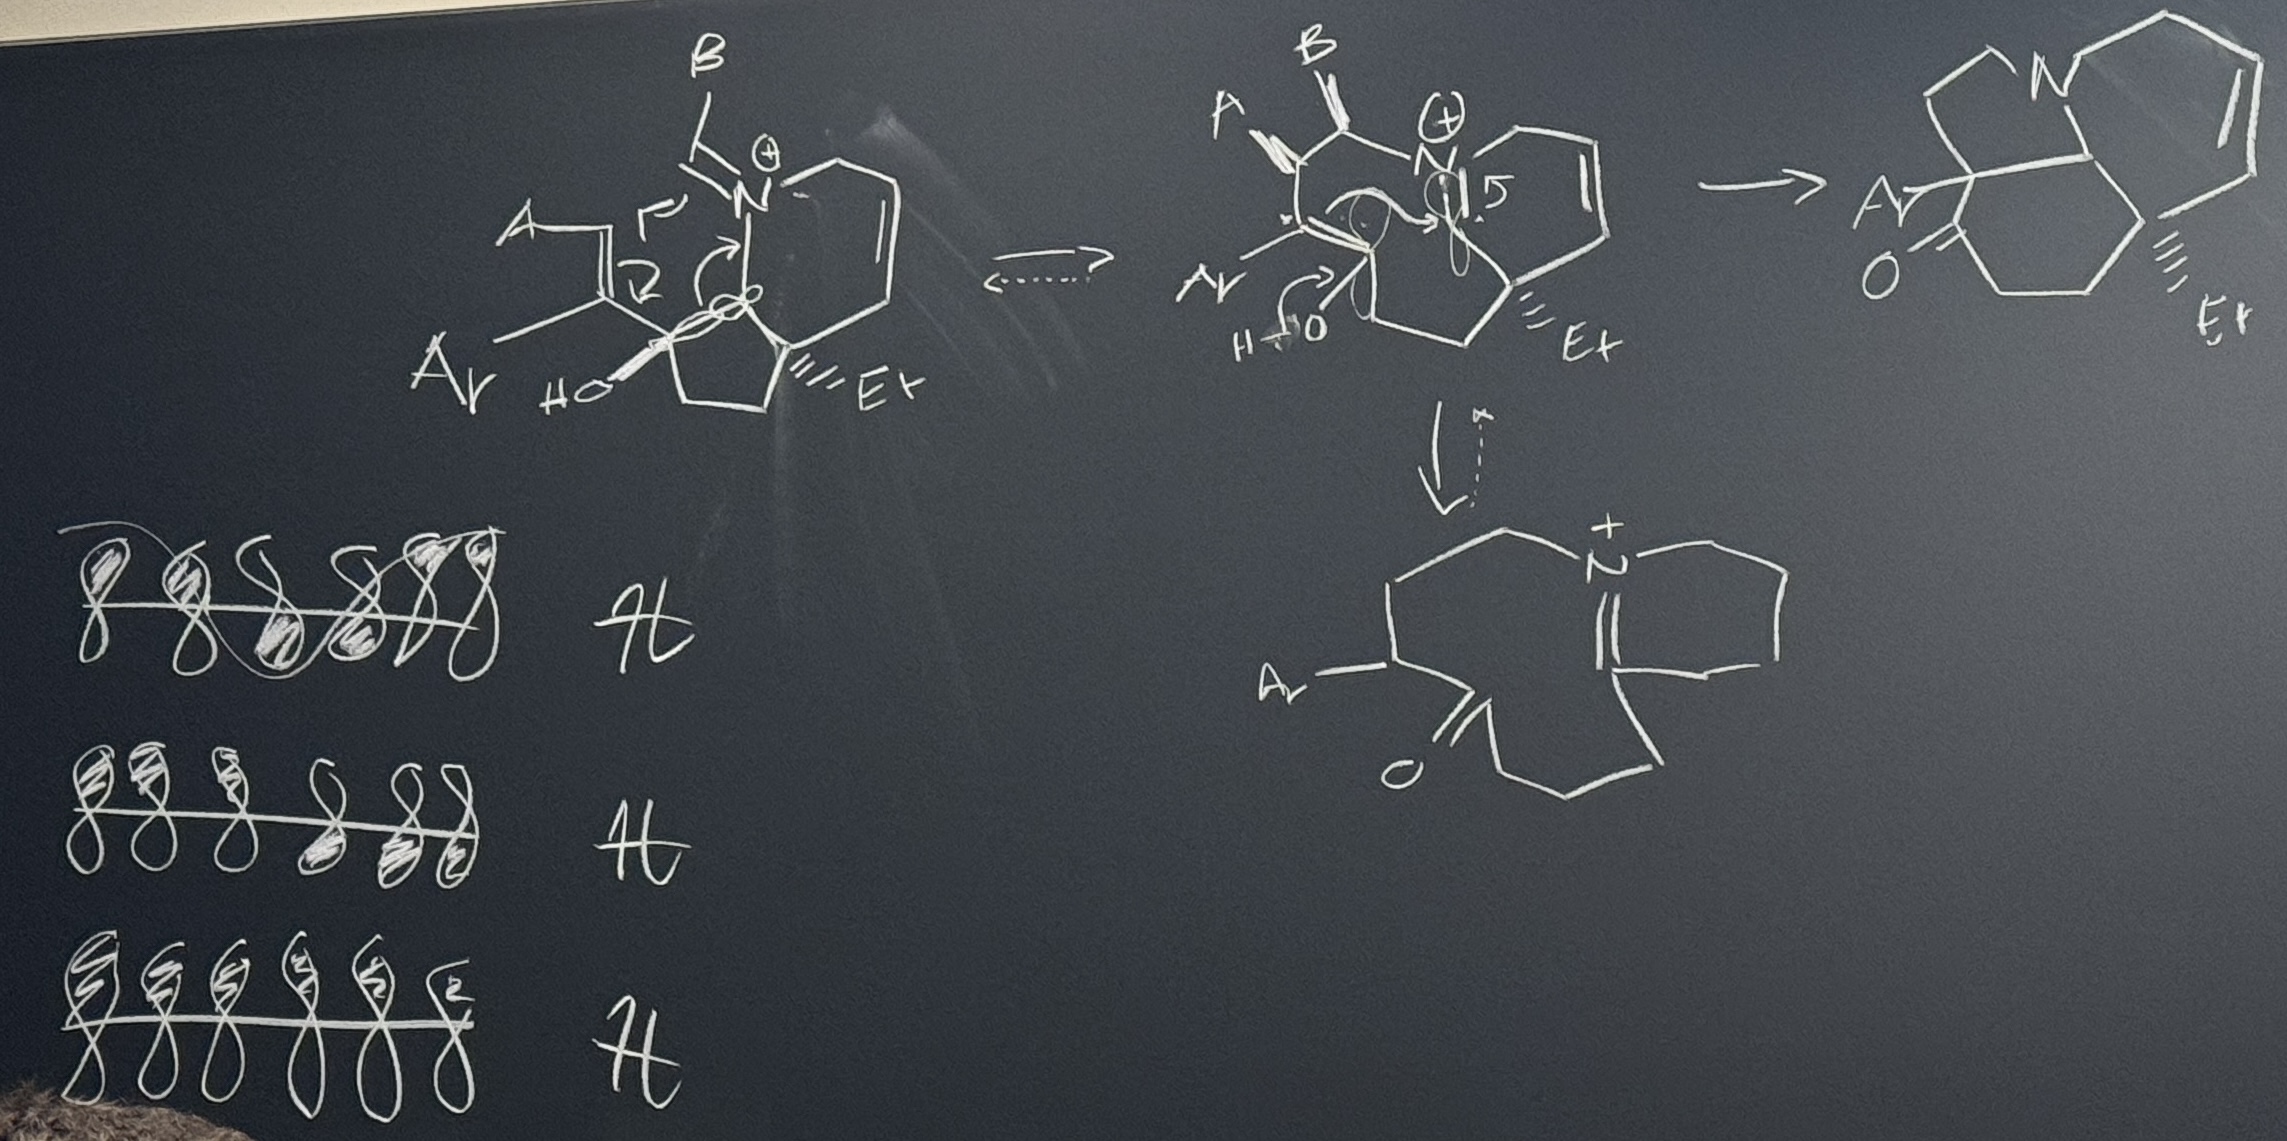 B
A
N
⊕
Ar
HO
Et
B
A
N
⊕
5
Ar
H
O
Et
N
Ar
O
Et
N
+
Ar
O